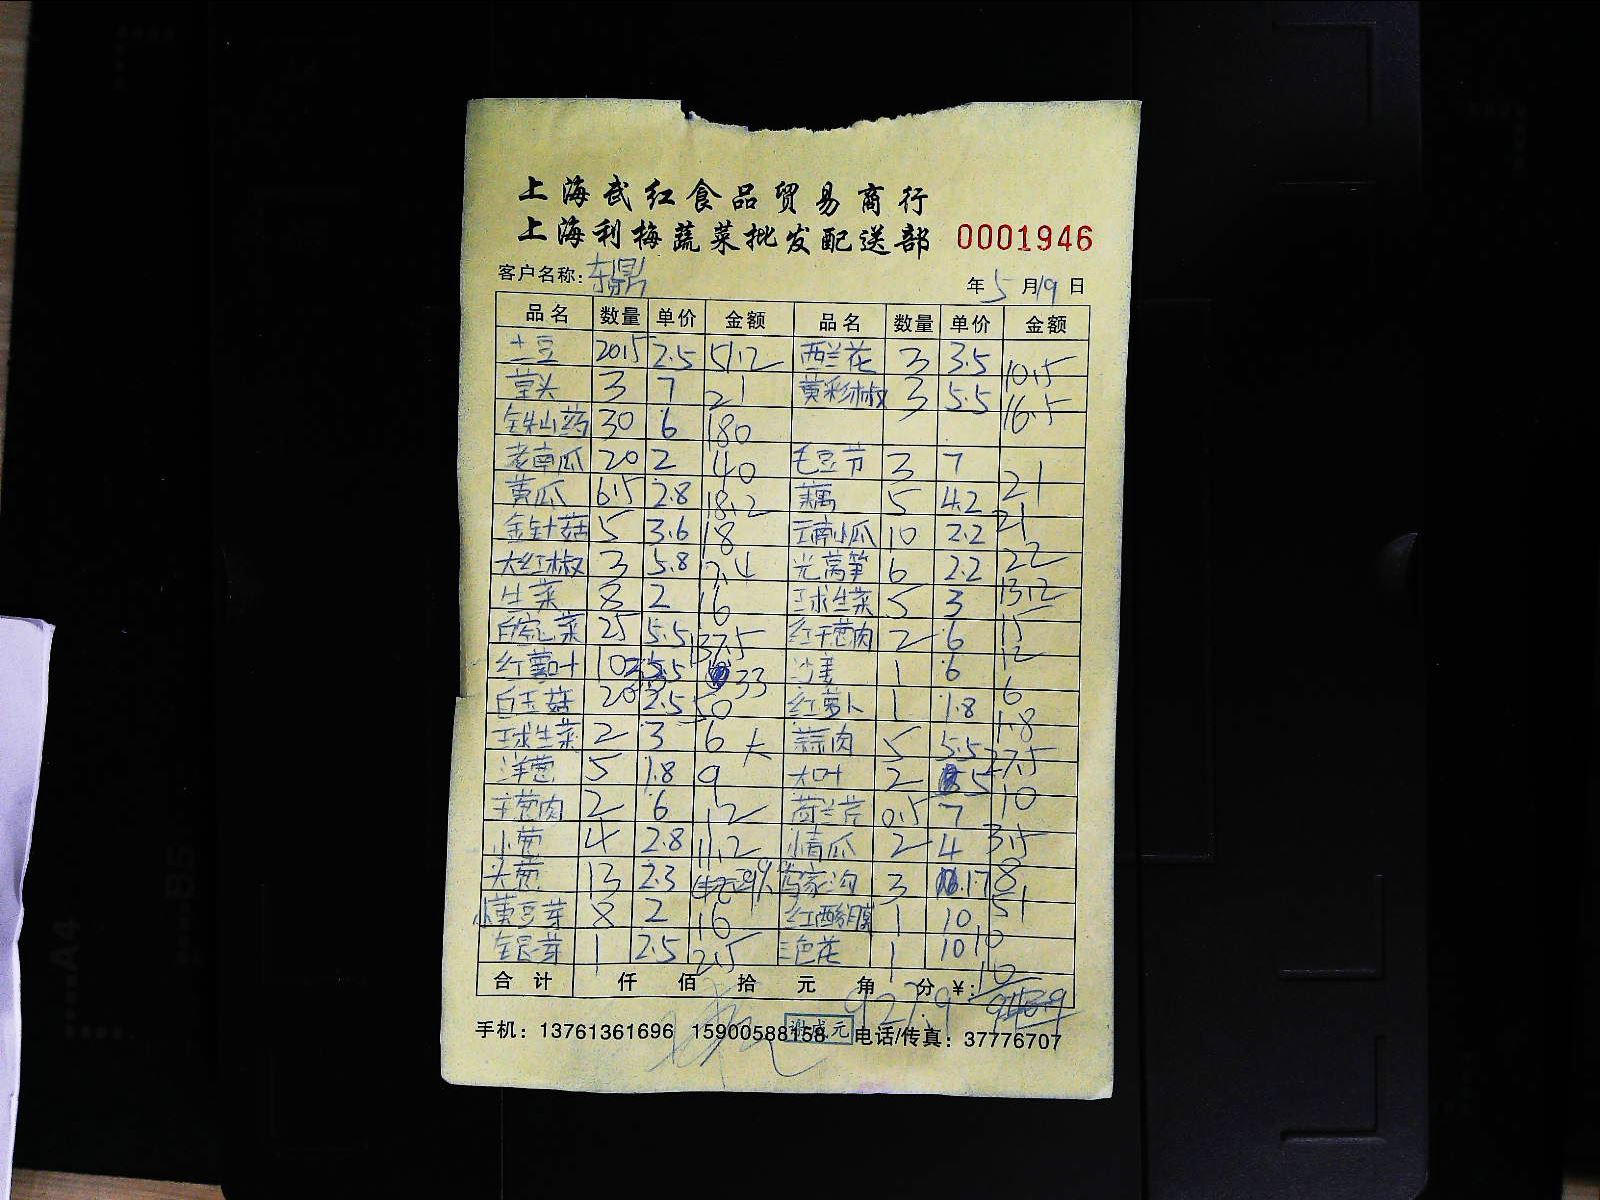 上海武红食品贸易商行
上海利梅蔬菜批发配送部 0001946
客户名称: 东鼎 年 5 月 19 日
品名 数量 单价 金额 品名 数量 单价 金额
土豆 20.5 2.5 51.2 西兰花 3 3.5 10.5
3 7 21 黄彩椒 3 5.5 16.5
铁山药 30 6 180
老南瓜 20 2 40 毛豆节 3 7 21
黄瓜 6.5 2.8 18.2 藕 5 4.2 21
金针菇 5 3.6 18 云南小瓜 10 2.2 22
大红椒 3 5.8 光莴笋 6 2.2 13.2
生菜 8 2 16 球生菜 5 3 15
25 5.5 137.5 红干葱肉 2 6 12
红薯叶 5.5 33 沙姜 1 6 6
白玉菇 20 2.5 50 红萝卜 1 1.8 1.8
球生菜 2 3 6 大 蒜肉 5 5.5 27.5
洋葱 5 1.8 9 大叶 2 5 10
干葱肉 2 6 12 荷兰芹 0.5 7 3.5
小葱 4 2.8 11.2 小青瓜 2 4 8
大葱 13 2.3 3 17 51
小黄豆芽 8 2 16 1 10 10
1 2.5 2.5 三色花 1 10 10
合计 仟 佰 拾 元 角 分 ¥:
927.9
手机: 13761361696 15900588158 电话/传真: 37776707